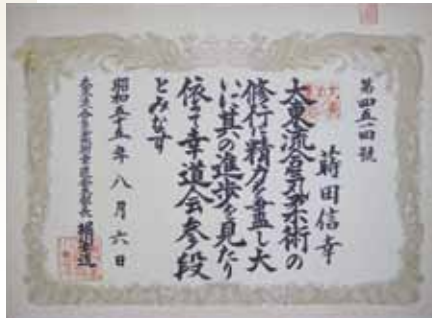 第四五一回號
蒔田信幸
大東流合気柔術の
修行に精力を盡し大
いに其の進歩を見たり
依て幸道会参段
とみなす
昭和五五年八月六日